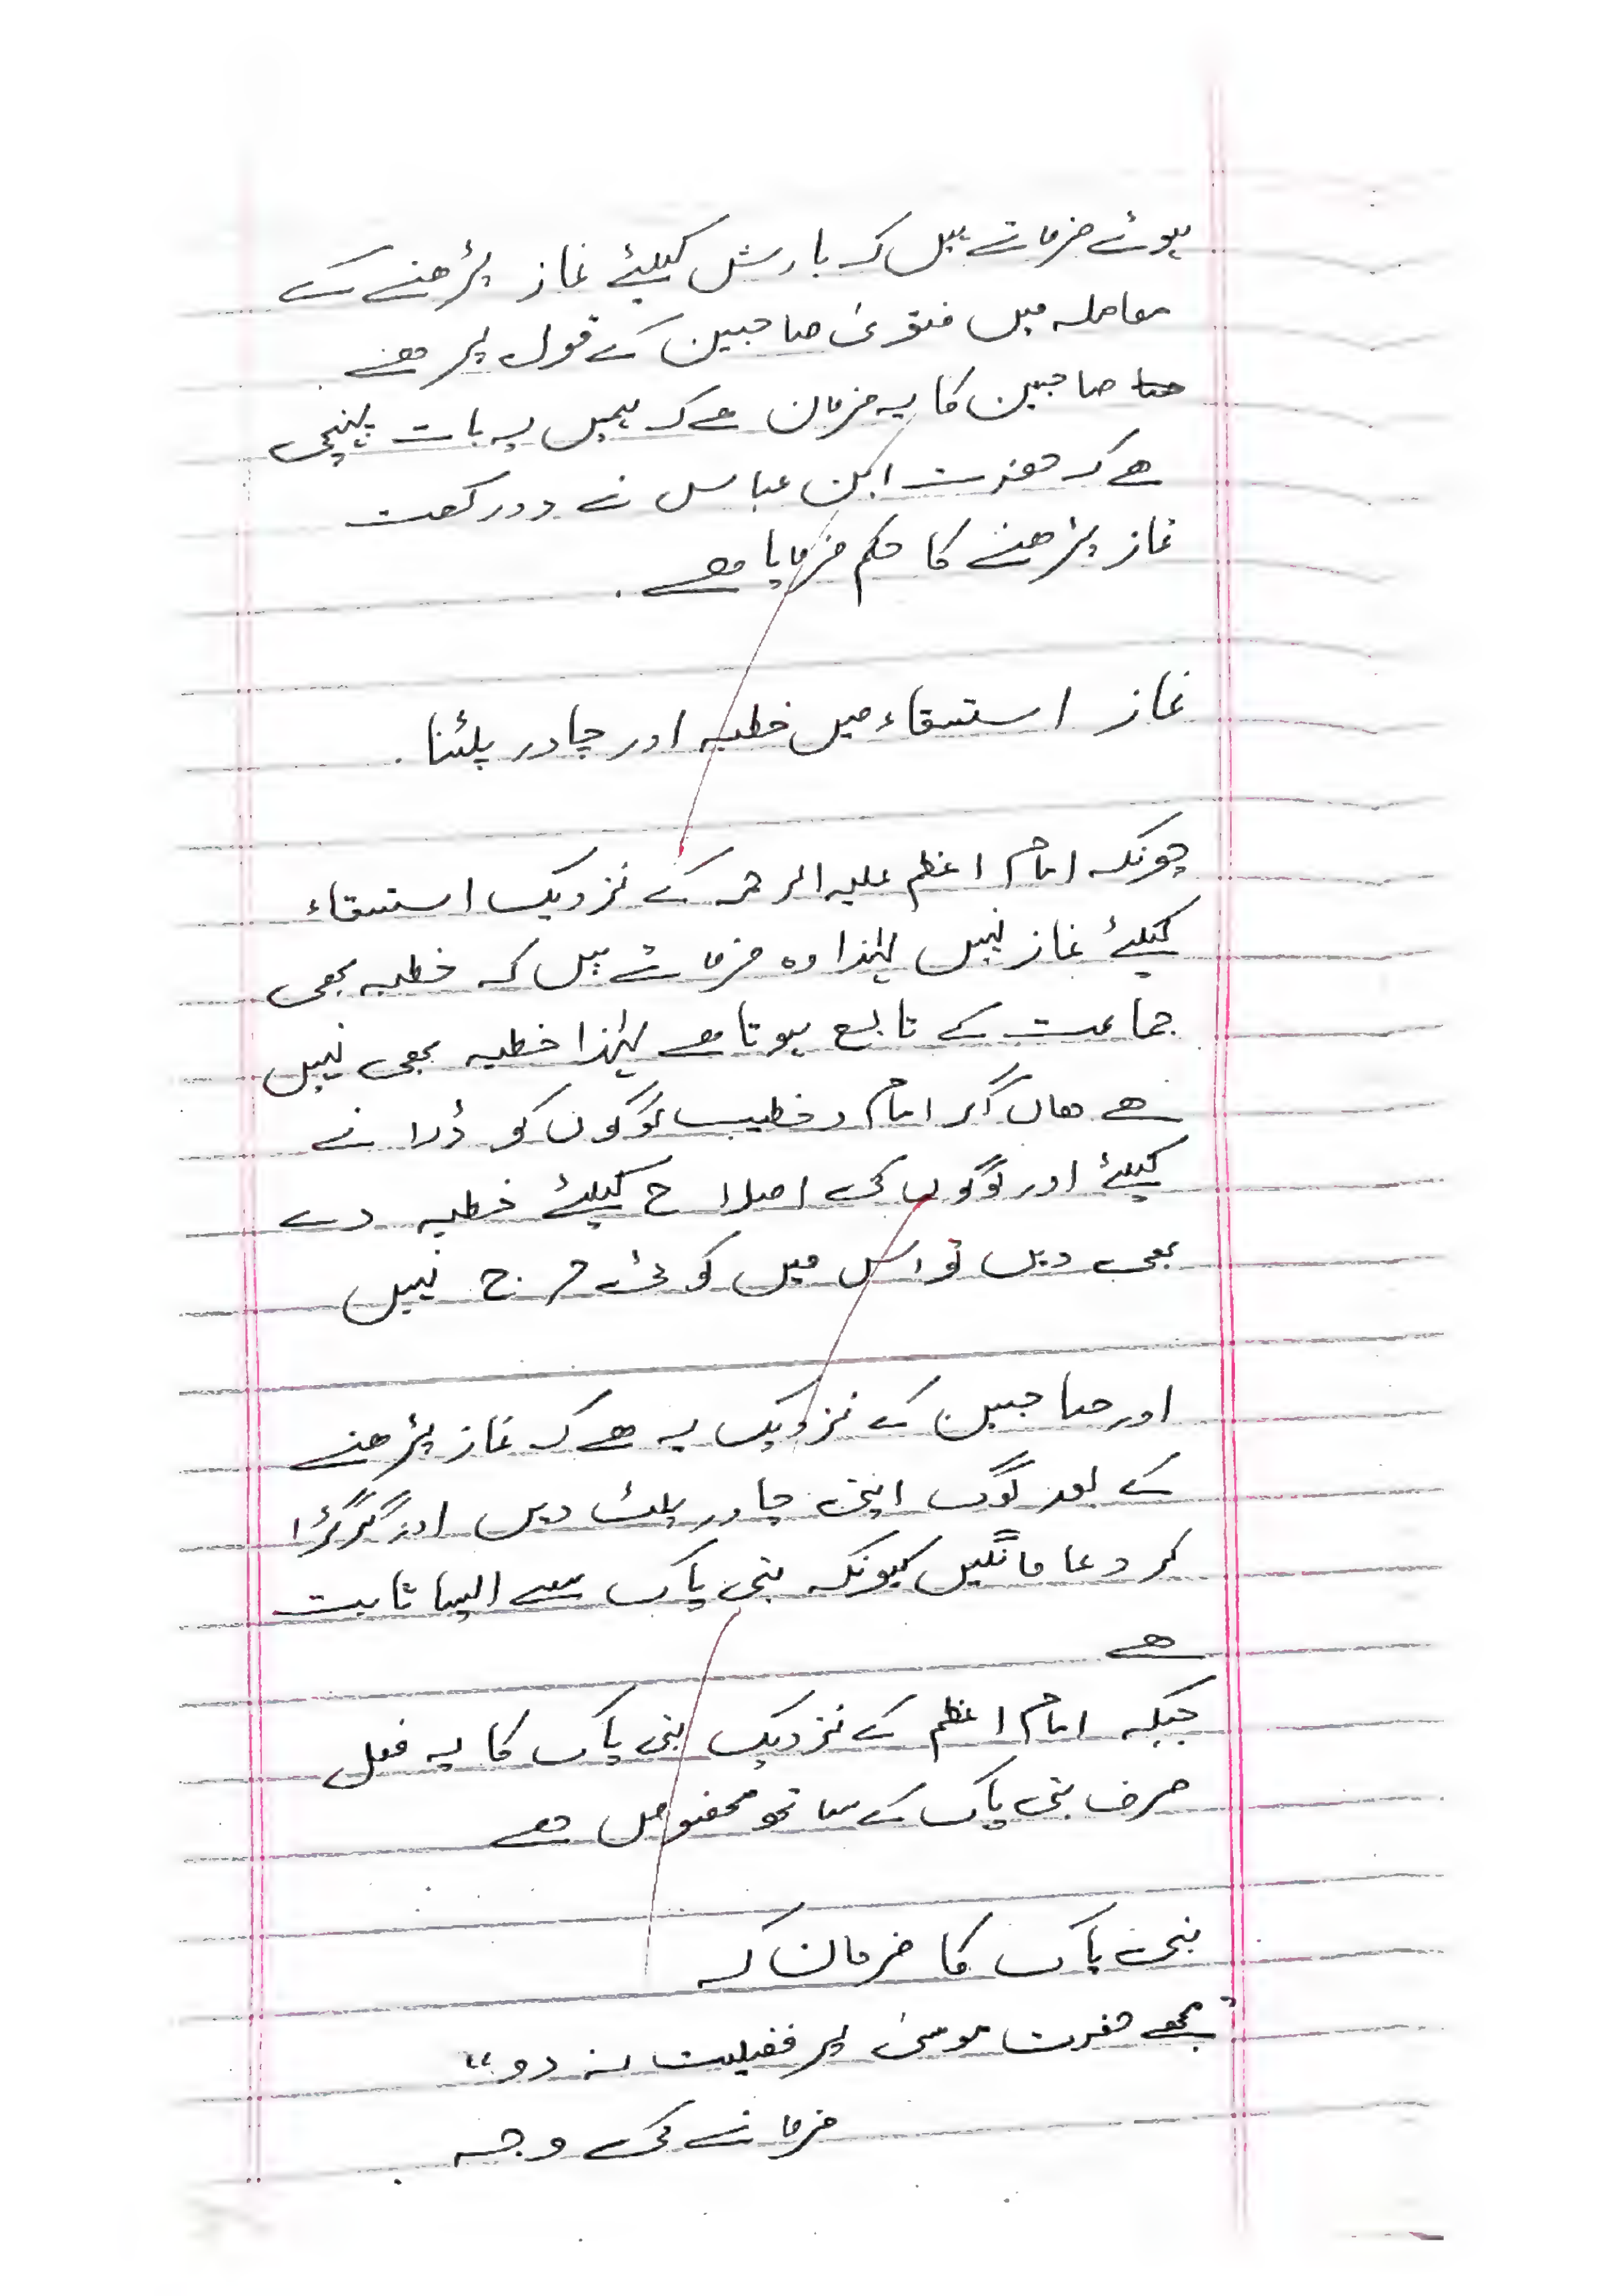 ہوئے فرماتے ہیں کہ بارش کیلئے نماز پڑھنے کے
معاملہ میں فتویٰ صاحبین کے قول پر ھے
صاحبین کا یہ فرمان ھے کہ ہمیں یہ بات پہنچی
ھے کہ حضرت ابن عباس نے دو رکعت
نماز پڑھنے کا حکم فرمایا ھے .
نماز استسقاء میں خطبہ اور چادر پلٹنا .
چونکہ امام اعظم علیہ الرحمہ کے نزدیک استسقاء
کیلئے نماز نہیں لہٰذا وہ فرماتے ہیں کہ خطبہ بھی
جماعت کے تابع ہوتا ھے لہٰذا خطبہ بھی نہیں
ھے ھاں اگر امام و خطیب لوگوں کو ڈرانے
کیلئے اور لوگوں کی اصلاح کیلئے خطبہ دے
بھی دیں تو اس میں کوئی حرج نہیں
اور صاحبین کے نزدیک یہ ھے کہ نماز پڑھنے
کے بعد لوگ اپنی چادر پلٹ دیں اور گڑگڑا
کر دعا مانگیں کیونکہ نبی پاک سے ایسا ثابت
ھے
جبکہ امام اعظم کے نزدیک نبی پاک کا یہ فعل
صرف نبی پاک کے ساتھ مخصوص ھے
نبی پاک کا فرمان کہ
"مجھے حضرت موسیٰ پر فضیلت نہ دو"
فرمانے کی وجہ